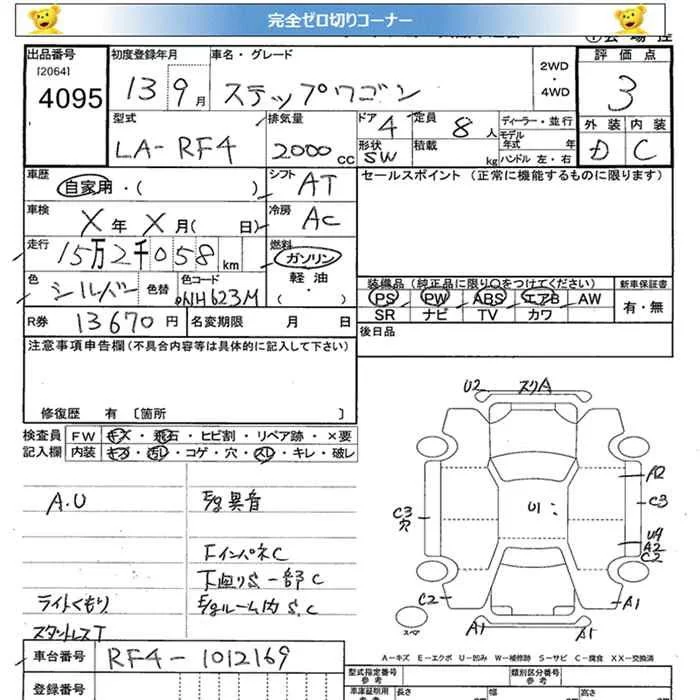 完全ゼロ切りコーナー
出品番号
[2064]
4095
初度登録年月
13 9月
車名・グレード
ステップワゴン
2WD
・
4WD
評価点
3
外装 内装
D C
型式
LA-RF4
排気量
2000cc
ドア 4
形状 SW
定員 8人
積載 kg
ディーラー・並行
モデル年式 年
ハンドル 左・右
車歴
自家用・( )
シフト AT
車検
X年X月( 日)
冷房 AC
走行
15万2千058km
燃料
ガソリン
軽油・
( )
色
シルバー
色替
色コード
NH623M
R券 13670円
名変期限 月 日
セールスポイント (正常に機能するものに限ります)
装備品 (純正品に限り○をつけてください)
PS PW ABS エアB AW
SR ナビ TV カワ
新車保証書
有・無
後日品
注意事項申告欄(不具合内容等は具体的に記入して下さい)
修復歴 有 〔箇所 〕
検査員記入欄
FW キズ・飛石・ヒビ割・リペア跡・×要
内装 キズ・汚レ・コゲ・穴・スレ・キレ・破レ
A.U
E/g異音
FインパネC
下回りS.一部C
ライトくもり
E/gルーム内S.C
スタットレスT
U2 スリA
U1
A2
C3
C3
穴
U4
A2
C2
C2
A1
A1
A1
スペア
A-キズ E-エクボ U-凹み W-補修跡 S-サビ C-腐食 XX-交換済
車台番号 RF4-1012169
登録番号
型式指定番号
参考
類別区分番号
参考
車庫証明用
参考
長さ
幅
高さ